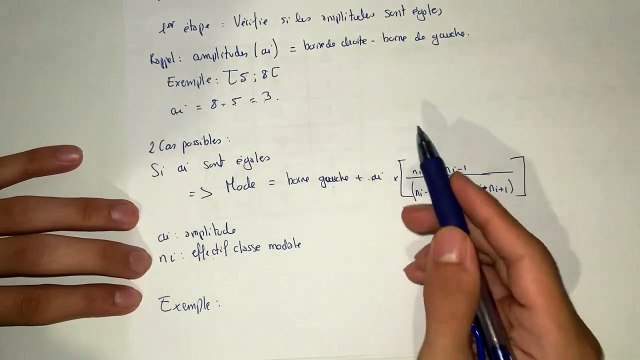 1er étape : Vérifie si les amplitudes sont égales
Rappel: amplitudes (ai) = borne de droite - borne de gauche.
Exemple : [5 ; 8[
ai = 8 - 5 = 3.
2 Cas possibles :
Si ai sont égales
=> Mode = borne gauche + ai ×
ai : amplitude
ni : effectif classe modale
Exemple :